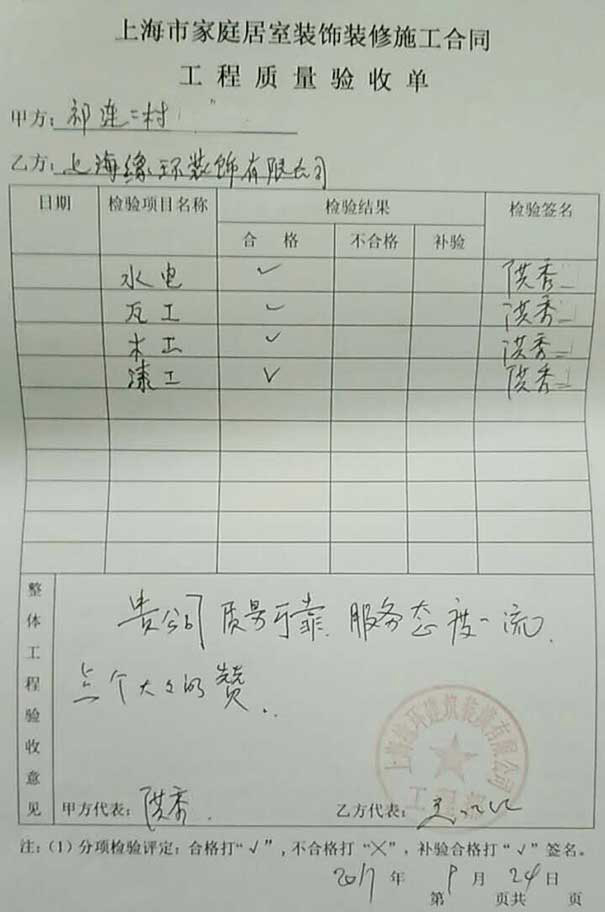 上海市家庭居室装饰装修施工合同
工程质量验收单
甲方：祁连二村
乙方：上海缘环装饰有限公司
日期 检验项目名称 检验结果 检验签名
合格 不合格 补验
水电 ✓ 洪秀
瓦工 ✓ 洪秀
木工 ✓ 洪秀
漆工 ✓ 洪秀
整体工程验收意见
贵公司质量可靠 服务态度一流.
点个大大的赞.
甲方代表：洪秀.
乙方代表：
注：(1) 分项检验评定：合格打“√”，不合格打“╳”，补验合格打“√”签名。
2017年9月24日
第 页共 页